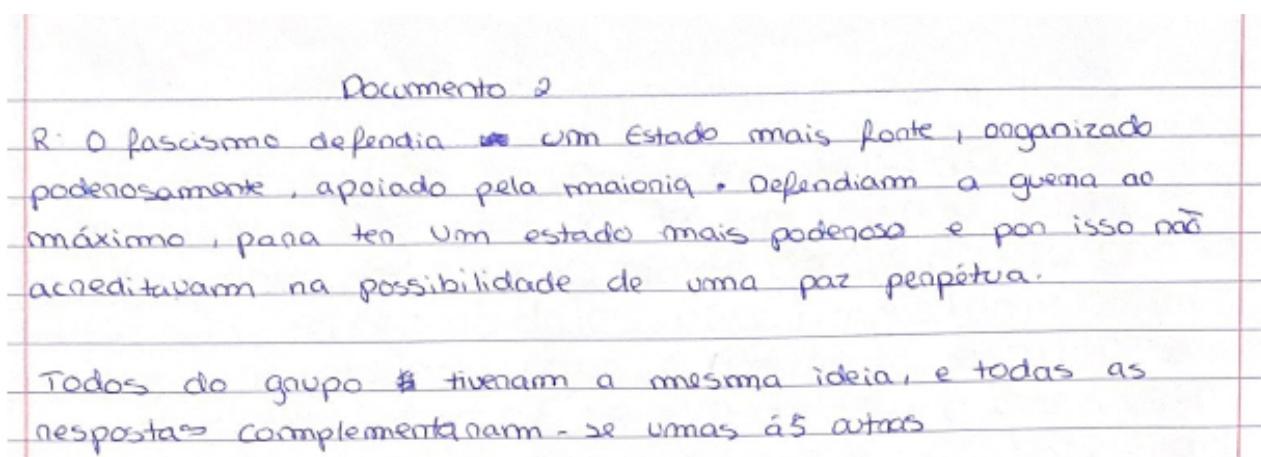 Documento 2
R: O fascismo defendia um Estado mais forte, organizado
poderosamente, apoiado pela maioria. Defendiam a guerra ao
máximo, para ter um estado mais poderoso e por isso não
acreditavam na possibilidade de uma paz perpétua.
Todos do grupo tiveram a mesma ideia, e todas as
respostas complementaram-se umas ás outras